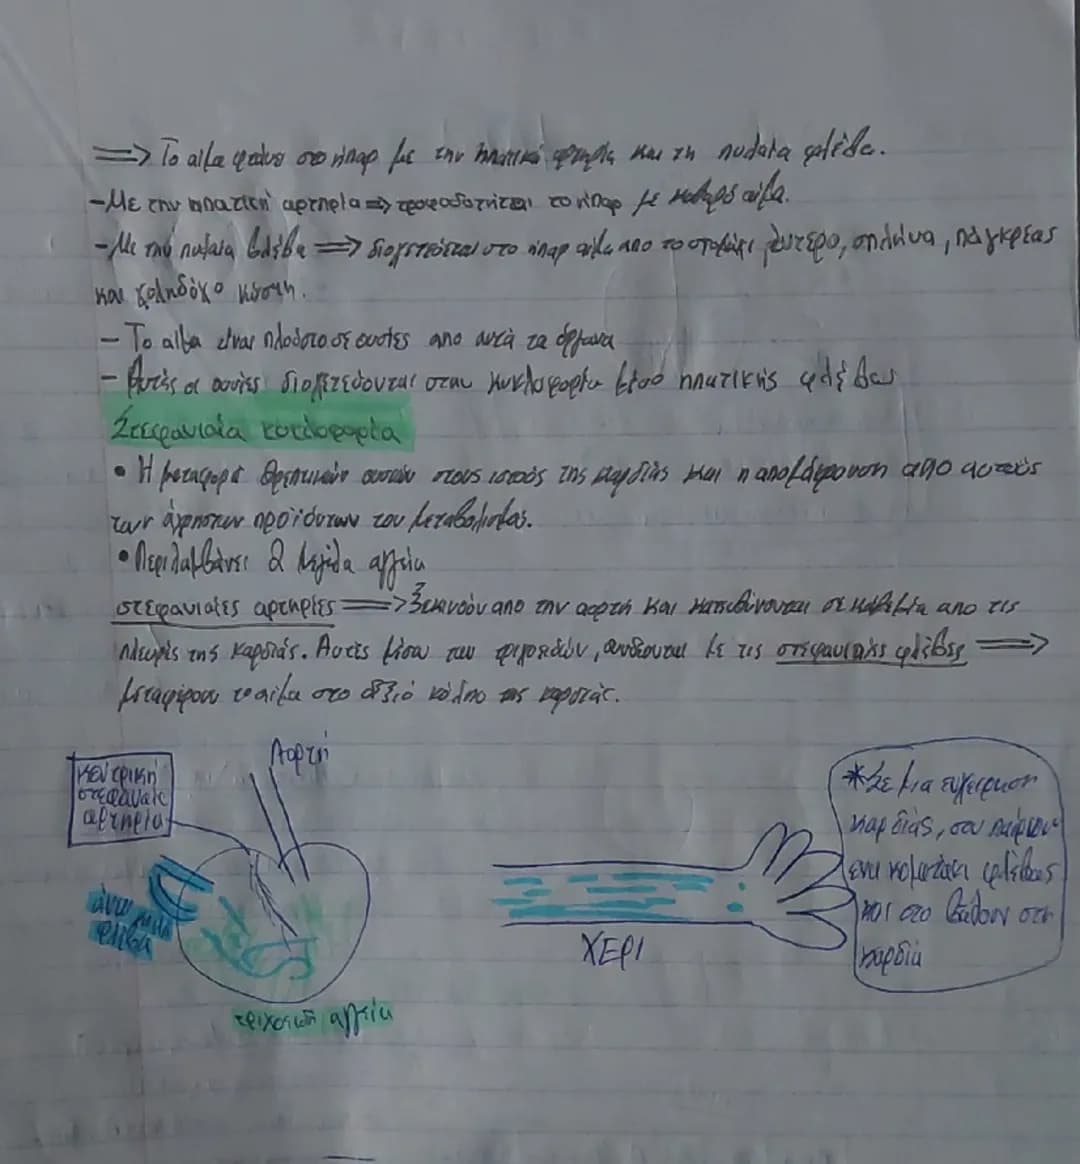 => Το αίμα φτάνει στο ήπαρ με την ηπατική αρτηρία και τη πυλαία φλέβα.
-Με την ηπατική αρτηρία => τροφοδοτείται το ήπαρ με καθαρό αίμα.
-Με την πυλαία φλέβα => διοχετεύεται στο ήπαρ αίμα απο το στομάχι, έντερο, σπλήνα, πάγκρεας
και χοληδόχο κύστη.
- Το αίμα είναι πλούσιο σε ουσίες απο αυτά τα όργανα
- Αυτές οι ουσίες διοχετεύονται στην κυκλοφορία μέσω ηπατικής φλέβας
Στεφανιαία κυκλοφορία
• Η μεταφορά θρεπτικών ουσιών στους ιστούς της καρδιάς και η απομάκρυνση από αυτούς
των άχρηστων προϊόντων του μεταβολισμού.
• Περιλαμβάνει 2 μεγάλα αγγεία
στεφανιαίες αρτηρίες => Ξεκινούν απο την αορτή και κατευθύνονται σε καθεμία απο τις
πλευρές της καρδιάς. Αυτές μέσω των τριχοειδών, συνδέονται με τις στεφανιαίες φλέβες =>
μεταφέρουν το αίμα στο δεξιό κόλπο της καρδιάς.
Αορτή
κεντρική
στεφανιαία
αρτηρία
άνω κοίλη
φλέβα
τριχοειδή αγγεία
ΧΕΡΙ
*Σε μια εγχείρηση
καρδιάς, σου παίρνουν
ένα κομματάκι φλέβας
και στο βάζουν στη
καρδιά